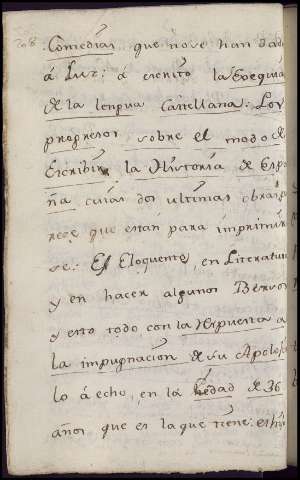 208
Comedias que nose han dado
á Luz: á escrito la Exequias
de la lengua Castellana: Los
progresos sobre el modo de
Escribir la Historia de Espa
ña cuias dos ultimas obras pa
rece que están para imprimir
se: Es Eloquente, en Literatura
y en hacer algunos Bersos
y esto todo con la Respuesta a
la impugnacion de su Apoloji
lo á echo, en la hedad de 36
años que es la que tiene: es hijo